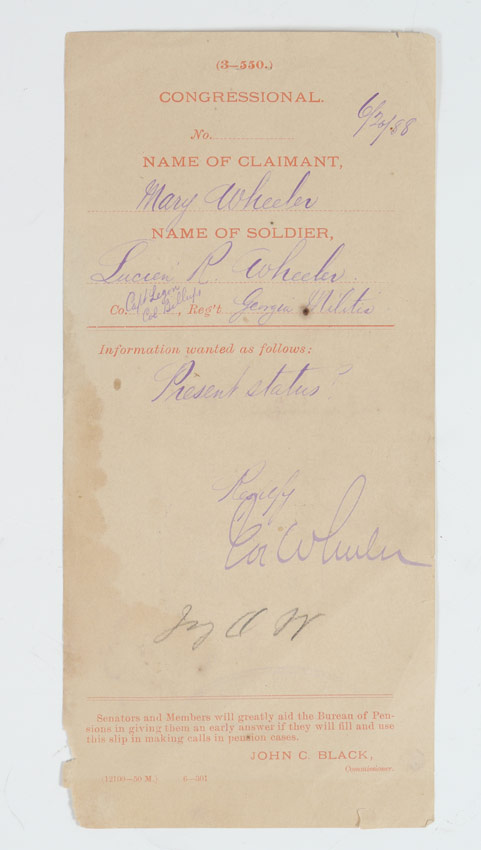 (3—550.)
CONGRESSIONAL.
6/20/88
No.
NAME OF CLAIMANT,
Mary Wheeler
NAME OF SOLDIER,
Lucien R. Wheeler
Capt
Co. Col. , Reg't Georgia Militia
Information wanted as follows:
Present status?
Wheeler
Senators and Members will greatly aid the Bureau of Pen-
sions in giving them an early answer if they will fill and use
this slip in making calls in pension cases.
JOHN C. BLACK,
Commissioner.
(12100—50 M.) 6—501